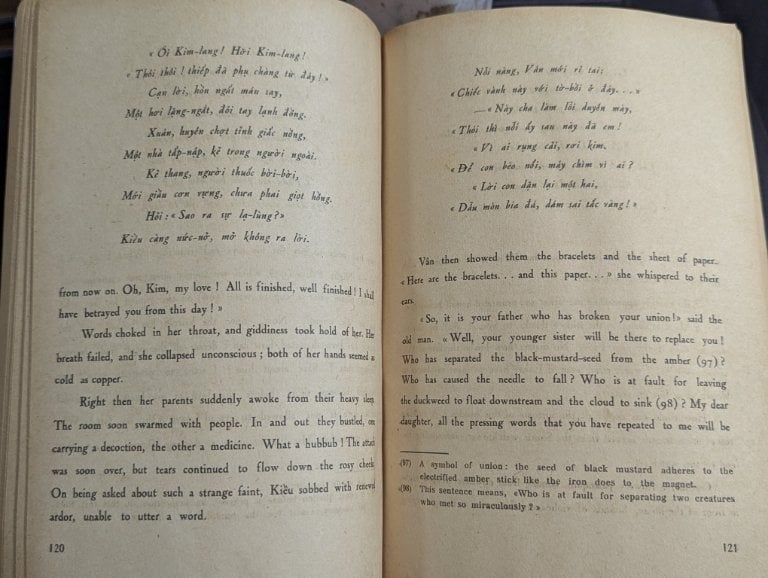 « Ôi Kim-lang! Hỡi Kim-lang!
« Thôi thôi! thiếp đã phụ chàng từ đây! »
Cạn lời, hồn ngất máu say,
Một hơi lặng-ngắt, đôi tay lạnh đồng.
Xuân, huyên chợt tỉnh giấc nồng,
Một nhà tấp-nập, kẻ trong người ngoài.
Kẻ thang, người thuốc bời-bời,
Mới giầu cơn vựng, chưa phai giọt hồng.
Hỏi: « Sao ra sự lạ-lùng? »
Kiều càng nức-nở, mở không ra lời.
from now on. Oh, Kim, my love! All is finished, well finished! I shall
have betrayed you from this day! »
Words choked in her throat, and giddiness took hold of her. Her
breath failed, and she collapsed unconscious; both of her hands seemed as
cold as copper.
Right then her parents suddenly awoke from their heavy sleep.
The room soon swarmed with people. In and out they bustled, one
carrying a decoction, the other a medicine. What a hubbub! The attack
was soon over, but tears continued to flow down the rosy cheek
On being asked about such a strange faint, Kiều sobbed with renewed
ardor, unable to utter a word.
120
Nỗi nàng, Vân mới rỉ tai:
« Chiếc vành này với tờ-bồi ở đây...»
—« Này cha làm lỗi duyên mày,
« Thôi thì nỗi ấy sau này đã em!
« Vì ai rụng cải, rơi kim,
« Để con bèo nổi, mây chìm vì ai?
« Lời con dặn lại một hai,
« Dẫu mòn bia đá, dám sai tấc vàng! »
Vân then showed them the bracelets and the sheet of paper.
« Here are the bracelets... and this paper... » she whispered to their
ears.
« So, it is your father who has broken your union!» said the
old man. « Well, your younger sister will be there to replace you!
Who has separated the black-mustard-seed from the amber (97)?
Who has caused the needle to fall? Who is at fault for leaving
the duckweed to float downstream and the cloud to sink (98)? My dear
daughter, all the pressing words that you have repeated to me will be
(97) A symbol of union: the seed of black mustard adheres to the
electrified amber stick like the iron does to the magnet.
(98) This sentence means, «Who is at fault for separating two creatures
who met so miraculously? »
121